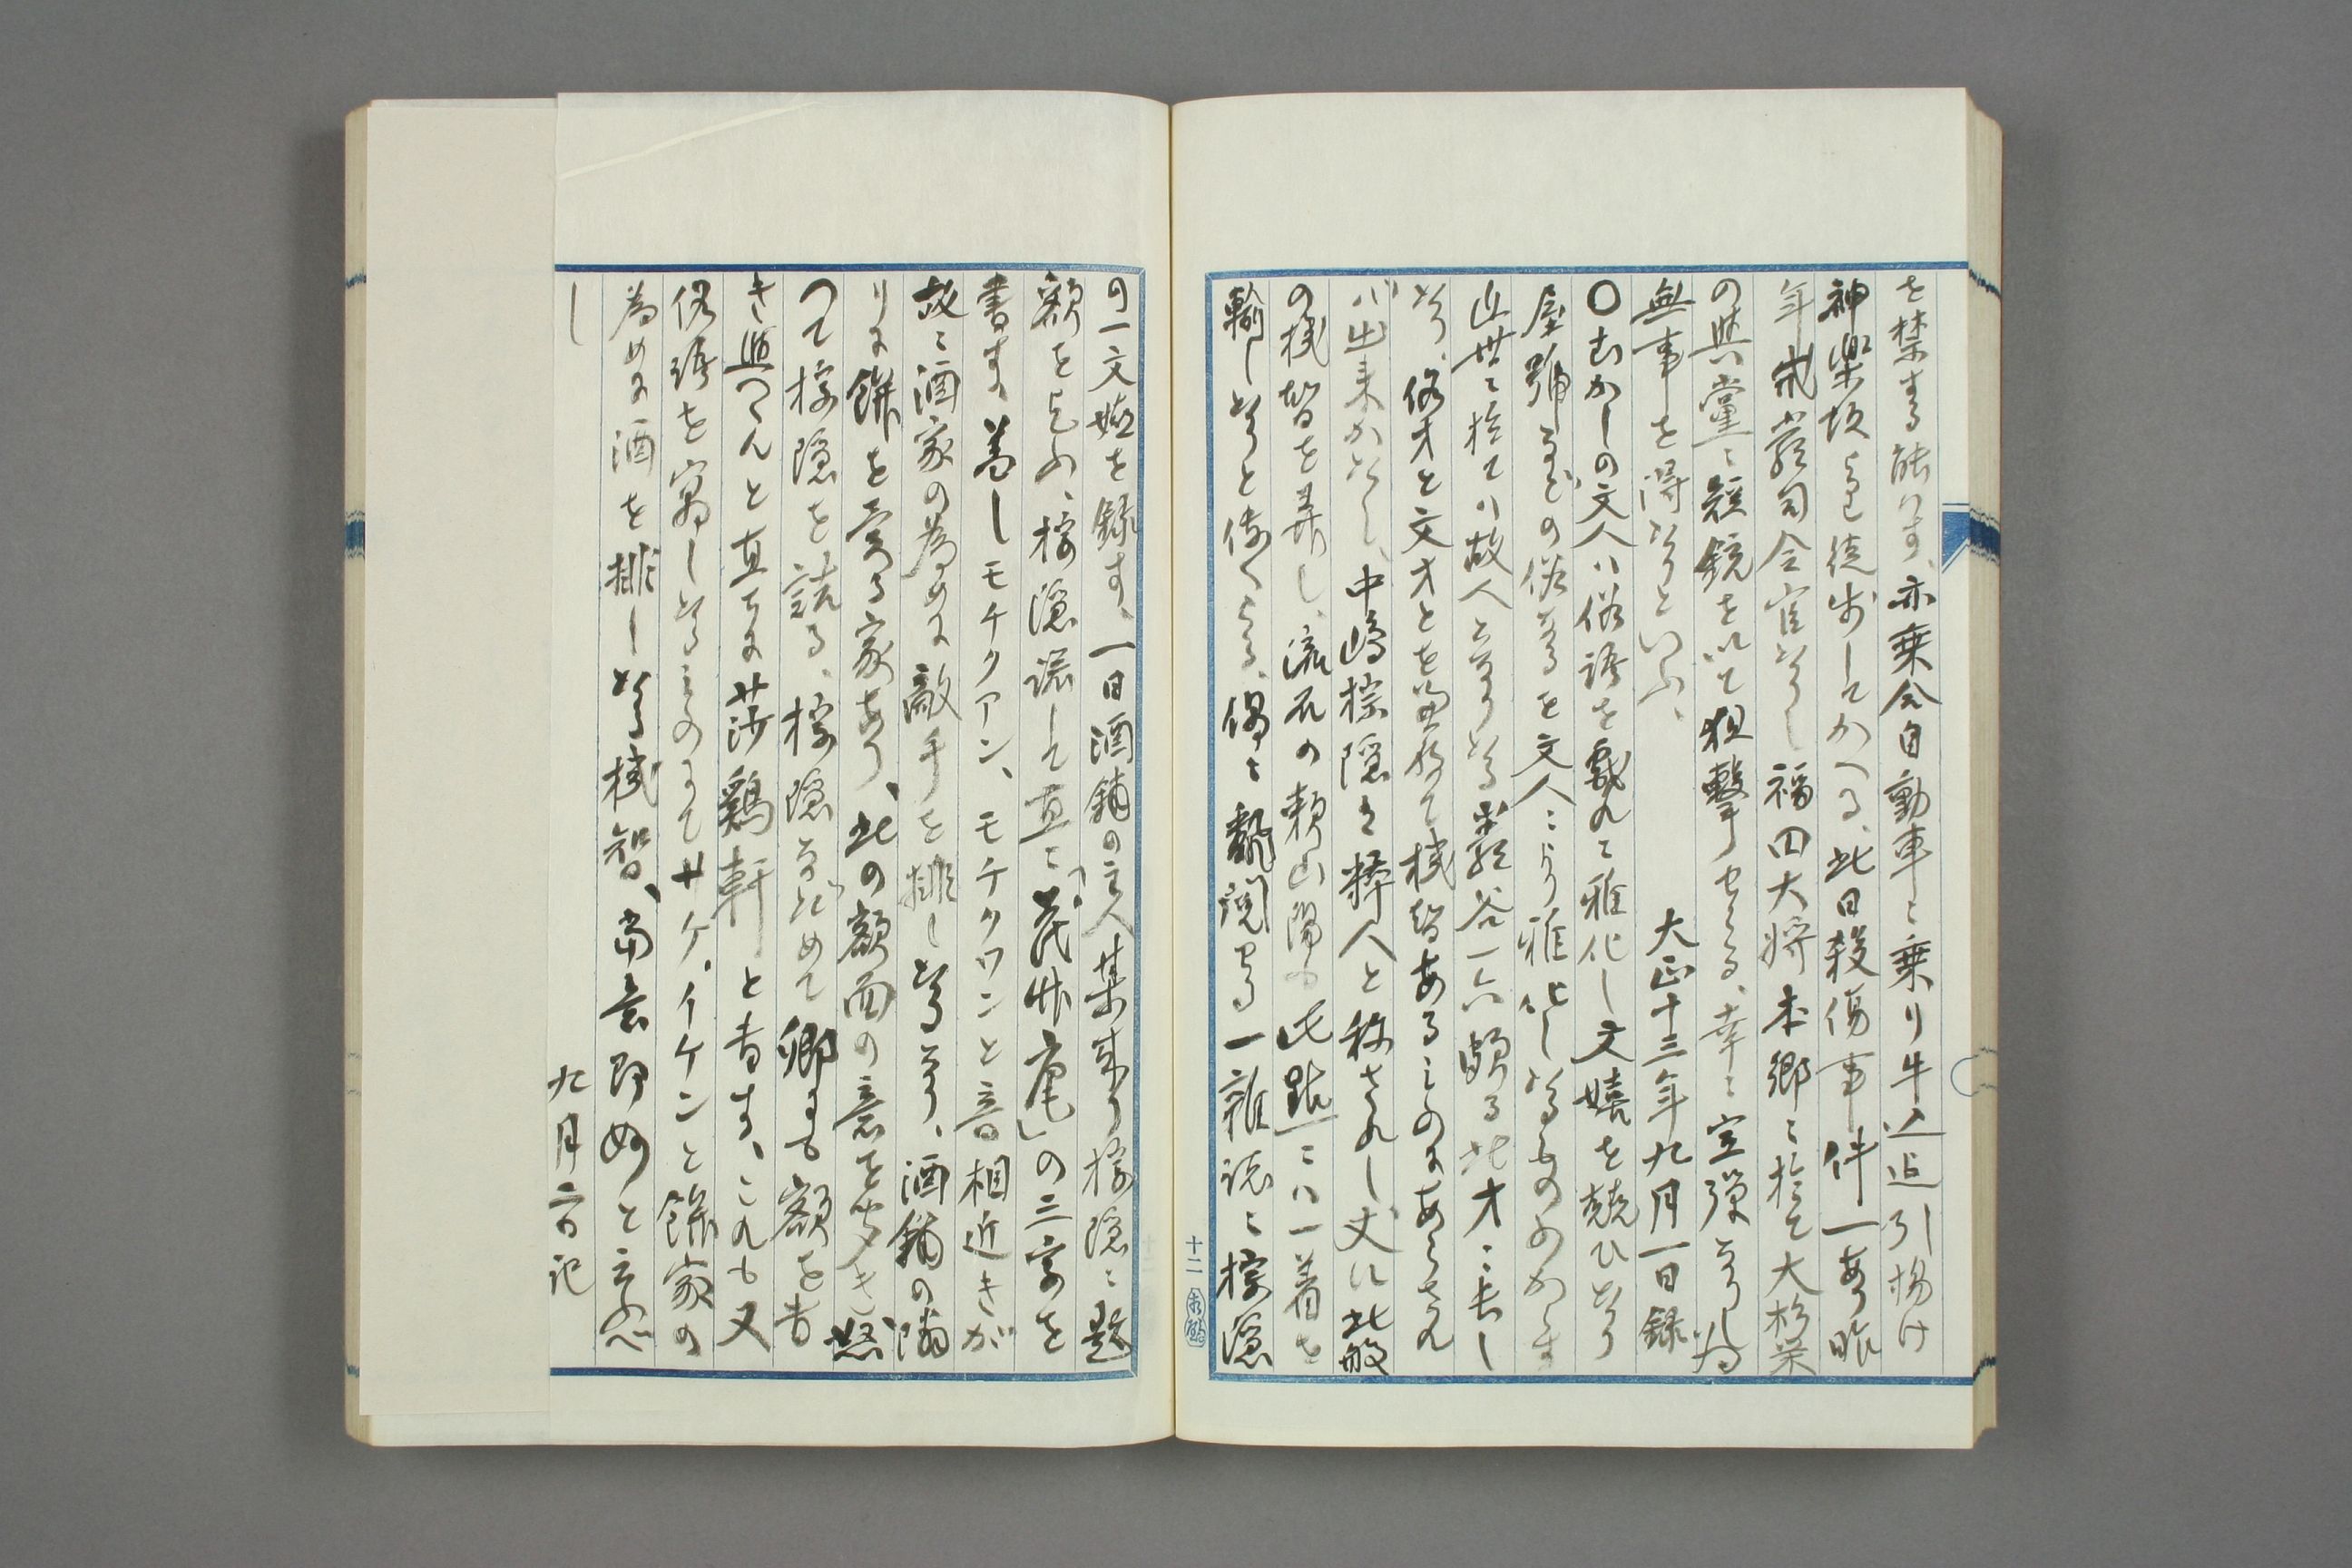 を禁する能はす、亦乗合自動車に乗り牛込迄引揚け
神楽坂迄徒歩してかへる、此日殺傷事件一あり昨
年戒厳司令官たりし福田大将本郷に於て大杉栄
の與黨に短銃を以て狙撃せらる、幸に空弾なりし為
無事を得たりといふ、
大正十三年九月一日録
〇むかしの文人ハ俗語を戯れに雅化し文嬉を競ひたり
屋號などの俗なるを文人により雅化したるもの少からす
近世に於てハ故人となりたる巌谷一六頗る此才に長し
たり、俗才と文才とを兼ねて機智あるものにあらされ
ハ出来かたし、中嶋棕隠は粋人と称されし丈に此般
の機智を弄し、流石の頼山陽も此點にハ一着を
輸したりと伝へらる、偶に翻閲せる一雑誌に棕隠
の一文嬉を録す、一日酒舗の主人某来り棕隠に題
額を乞ふ、棕隠諾して直に「茂竹庵」の三字を
書す、蓋しモチクアン、モチクワンと音相近きが
故に酒家の為めに敵手を排したるなり、酒舗の隣
りに餅を売る家あり、此の額面の意を聞き怒
つて棕隠を詰る、棕隠なだめて卿にも額を書
き與へんと直ちに莎鶏軒と書す、これも又
俗語を寓したるものにてサケ、イケンと餅家の
為めに酒を排したる機智、当意即妙と云ふへ
し
九月六日記
十二